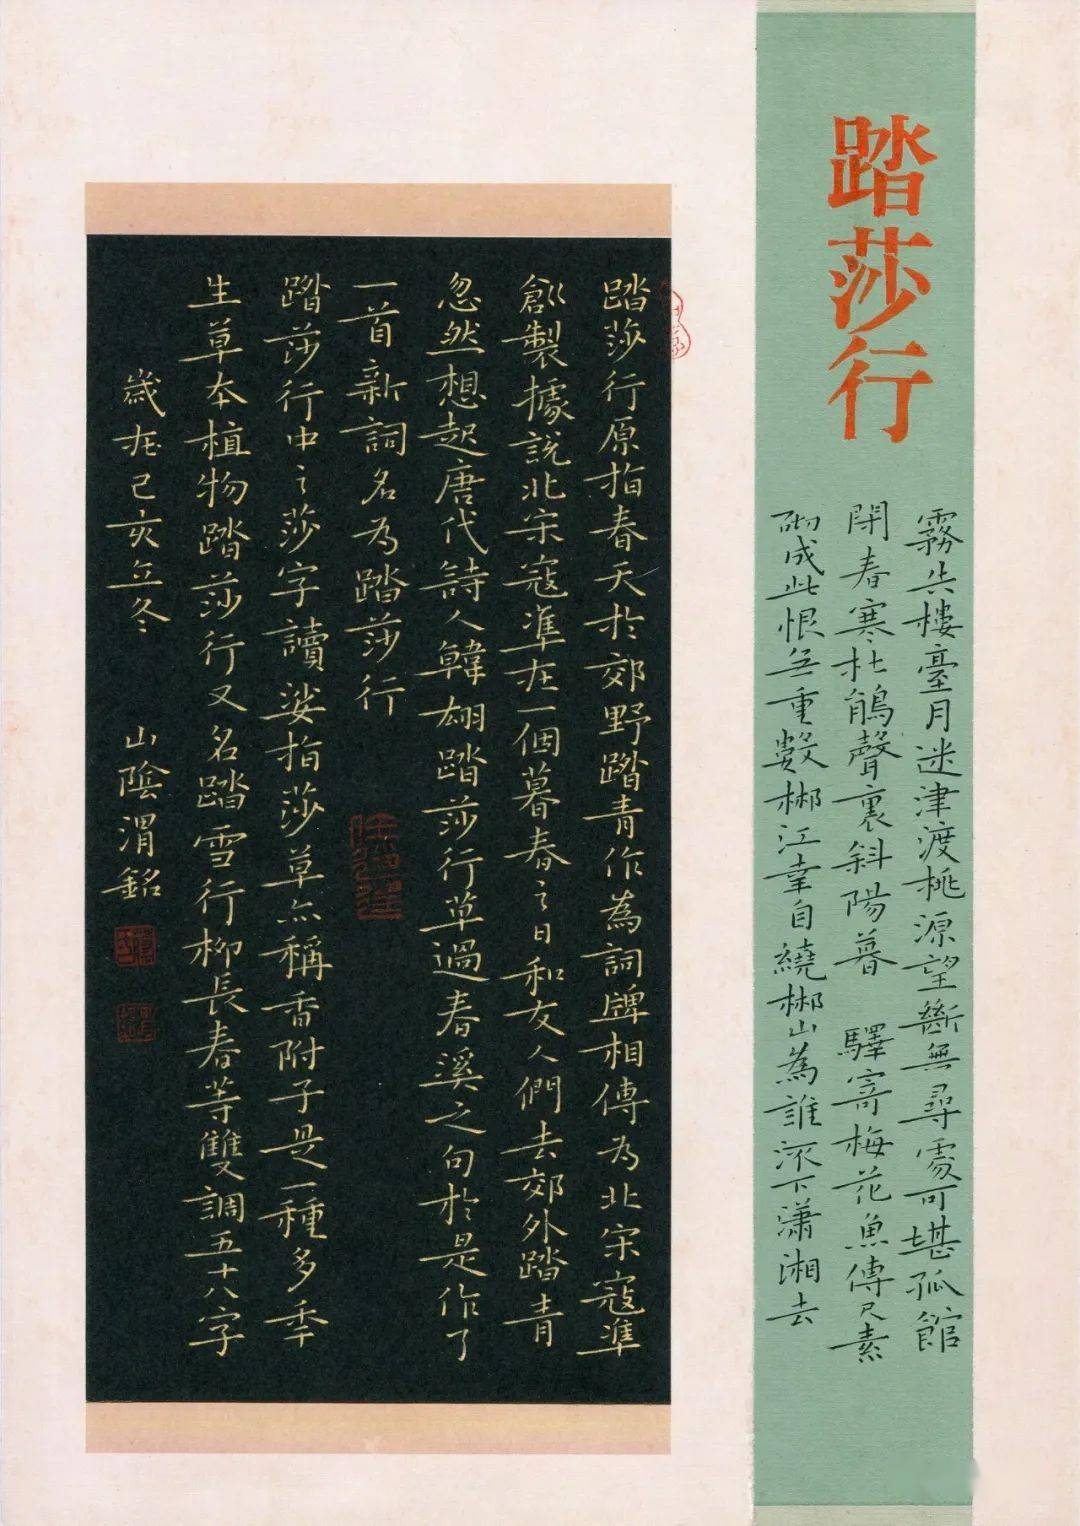 踏莎行
霧失樓臺月迷津渡桃源望斷無尋處可堪孤館
閉春寒杜鵑聲裏斜陽暮 驛寄梅花魚傳尺素
砌成此恨無重數郴江幸自繞郴山為誰流下瀟湘去
踏莎行原指春天於郊野踏青作為詞牌相傳為北宋寇準
創製據説北宋寇準在一個暮春之日和友人們去郊外踏青
忽然想起唐代詩人韓翃踏莎行草過春溪之句於是作了
一首新詞名為踏莎行
踏莎行中之莎字讀娑指莎草亦稱香附子是一種多年
生草本植物踏莎行又名踏雪行柳長春等雙調五十八字
歲在己亥立冬 山陰渭銘